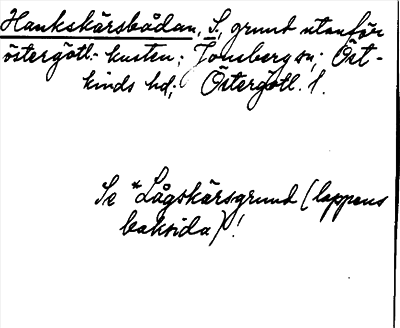 Hankskärsbådan, S, grund utanför
östergötl.- kusten; Jonsberg sn; Öst-
kinds hd; Östergötl. l.
Se *Lågskärsgrund (lappens
baksida)!